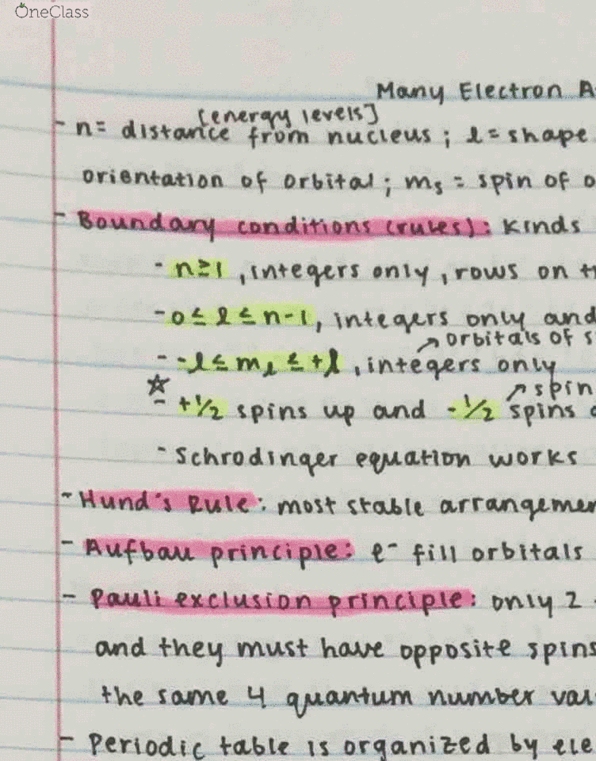 OneClass
Many Electron A
[energy levels]
- n= distance from nucleus ; l = shape
orientation of orbital ; ms = spin of o
- Boundary conditions (rules) : kinds
- n≥1 , integers only , rows on t
- 0 ≤ l ≤ n-1 , integers only and
↗ orbitals of s
- -l ≤ ml ≤ +l , integers only
↗ spin
☆ - +1/2 spins up and -1/2 spins
- Schrodinger equation works
- Hund's Rule : most stable arrangemen
- Aufbau principle : e⁻ fill orbitals
- Pauli exclusion principle : only 2
and they must have opposite spins
the same 4 quantum number val
- Periodic table is organized by ele